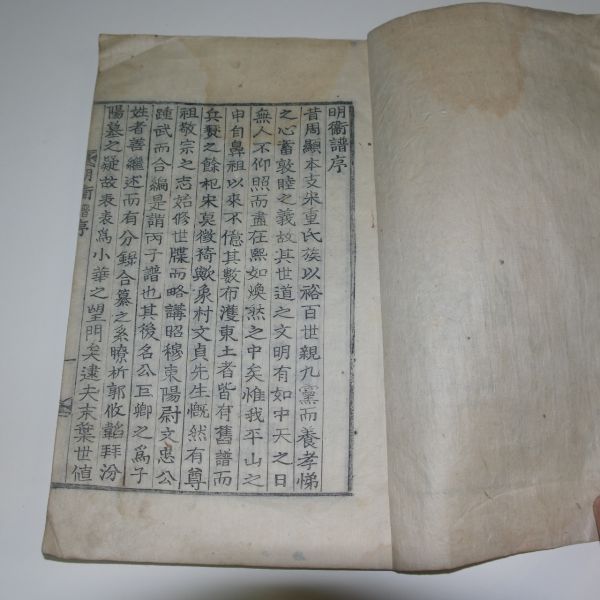 明衛譜序
昔周顯本支采重氏族以裕百世親九黨而養孝悌
之心蓄敦睦之義故其世道之文明有如中天之日
無人不仰照而盡在熙如煥然之中矣惟我平山之
申自鼻祖以來不億其數布濩東土者皆有舊譜而
兵燹之餘杞宋莫徵猗歟象村文貞先生慨然有尊
祖敬宗之志始修世牒而略講昭穆東陽尉文忠公
踵武而合編是謂丙子譜也其後名公巨卿之爲子
姓者善繼述而有分錄合纂之系瞭析郭攸韜拜汾
陽墓之疑故表表爲小華之望門矣逮夫末葉世値
明衛譜序